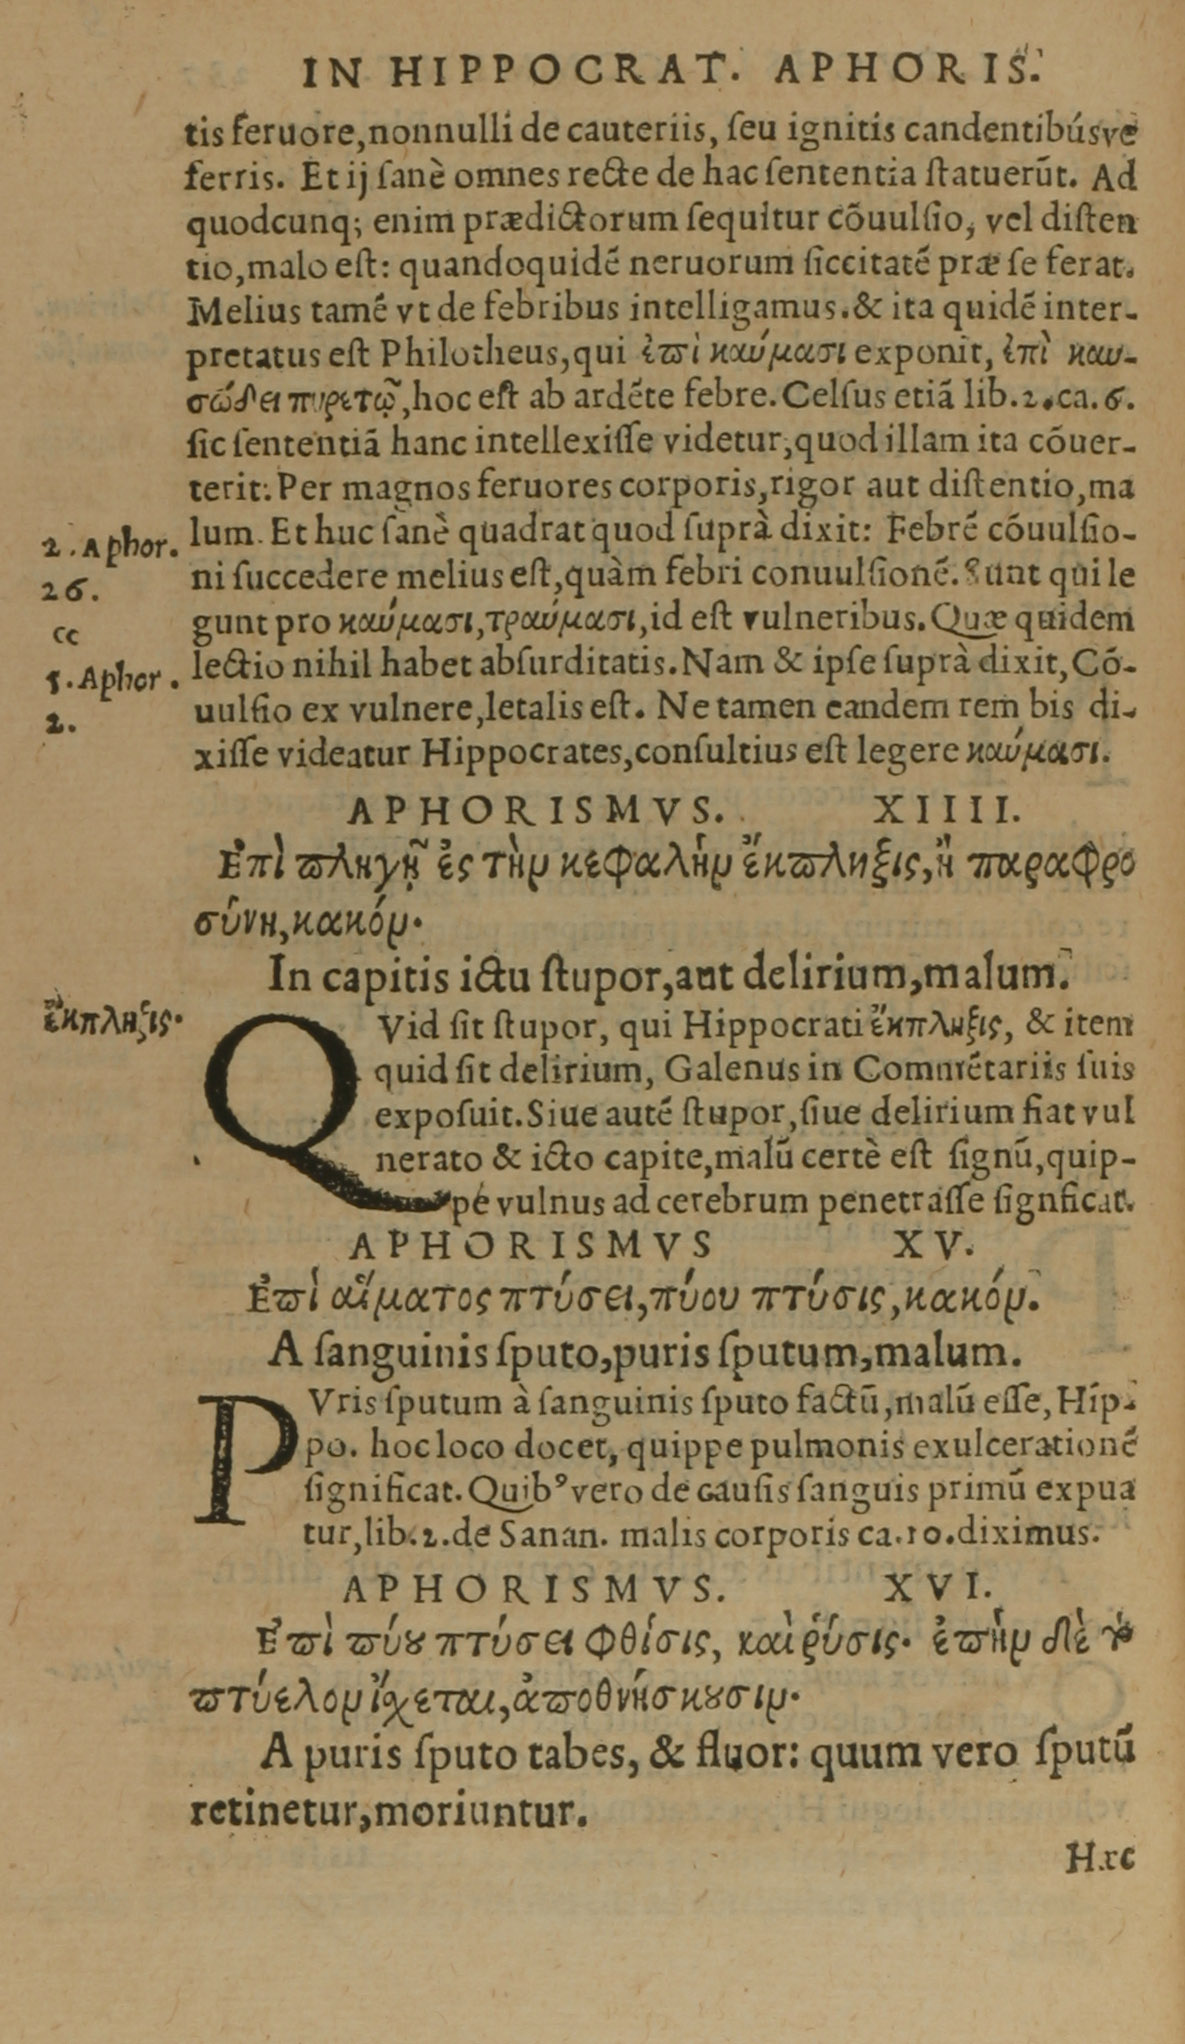 IN HIPPOCRAT. APHORIS.
tis feruore,nonnulli de cauteriis, ſeu ignitis candentibúsve
ferris. Et ij ſanè omnes recte de hac ſententia ſtatuerũt. Ad
quodcunq; enim prædictorum ſequitur cõuulſio, vel diſten
tio,malo eſt: quandoquidẽ neruorum ſiccitatẽ præ ſe ferat.
Melius tamẽ vt de febribus intelligamus.& ita quidẽ inter-
pretatus eſt Philotheus,qui ἐπὶ καύμασι exponit, ἐπὶ καυ-
σώδει πυρετῷ,hoc eſt ab ardẽte febre. Celſus etiã lib.2.ca.6.
ſic ſententiã hanc intellexiſſe videtur,quod illam ita cõuer-
terit: Per magnos feruores corporis,rigor aut diſtentio,ma
2. Aphor.
26.
lum. Et huc ſanè quadrat quod ſuprà dixit: Febrẽ cõuulſio-
ni ſuccedere melius eſt,quàm febri conuulſionẽ. Sunt qui le
gunt pro καύμασι,τραύμασι,id eſt vulneribus. Quæ quidem
cc
5. Aphor.
2.
lectio nihil habet abſurditatis. Nam & ipſe ſuprà dixit, Cõ-
uulſio ex vulnere,letalis eſt. Ne tamen eandem rem bis di-
xiſſe videatur Hippocrates,conſultius eſt legere καύμασι.
APHORISMVS. XIIII.
Ἐπὶ πληγῇ ἐς τὴν κεφαλὴν ἔκπληξις,ἢ παραφρο
σύνη,κακόν.
In capitis ictu ſtupor,aut delirium,malum.
ἔκπληξις.
QVid ſit ſtupor, qui Hippocrati ἔκπληξις, & item
quid ſit delirium, Galenus in Commẽtariis ſuis
expoſuit. Siue autẽ ſtupor,ſiue delirium fiat vul
nerato & icto capite,malũ certè eſt ſignũ,quip-
pe vulnus ad cerebrum penetraſſe ſignficat.
APHORISMVS XV.
Ἐπὶ αἵματος πτύσει,πύου πτύσις,κακόν.
A ſanguinis ſputo,puris ſputum,malum.
PVris ſputum à ſanguinis ſputo factũ,malũ eſſe, Hip-
po. hoc loco docet, quippe pulmonis exulcerationẽ
ſignificat. Quibꝰ vero de cauſis ſanguis primũ expua
tur,lib.2.de Sanan. malis corporis ca.10.diximus.
APHORISMVS. XVI.
Ἐπὶ πύȣ πτύσει φθίσις, καὶ ῥύσις. ἐπὴν δὲ τὸ
πτύελον ἴχεται,ἀποθνήσκȣσιν.
A puris ſputo tabes, & fluor: quum vero ſputũ
retinetur,moriuntur.
Hæc